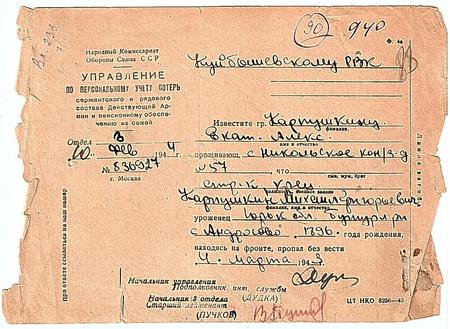 90 940
Вх. 233
Народный Комиссариат
Обороны Союза ССР
УПРАВЛЕНИЕ
ПО ПЕРСОНАЛЬНОМУ УЧЕТУ ПОТЕРЬ
сержантского и рядового
состава Действующей Армии
и пенсионному обеспечению их семей
Куйбышевскому РВК
Отдел 3
10 Фев 194 4
№ 836927
г. Москва
Известите гр. Картушкину
фамилия,
Екат. Алекс.
имя и отчество
проживающ. с Никольское кон/з-д
№ 57 что
сын, муж, брат
стр-к красн
воинское звание
Картушкин Михаил Григорьевич
фамилия, имя и отчество
уроженец
с Андросово 1896 года рождения,
находясь на фронте, пропал без вести
4 марта 194 3
Начальник управления
Подполковник инт. службы
(ДУДКА)
Начальник 3 отдела
Старший лейтенант
(ПУЧКОВ)
ЦТ НКО 8256—43
При ответе ссылаться на наш номер